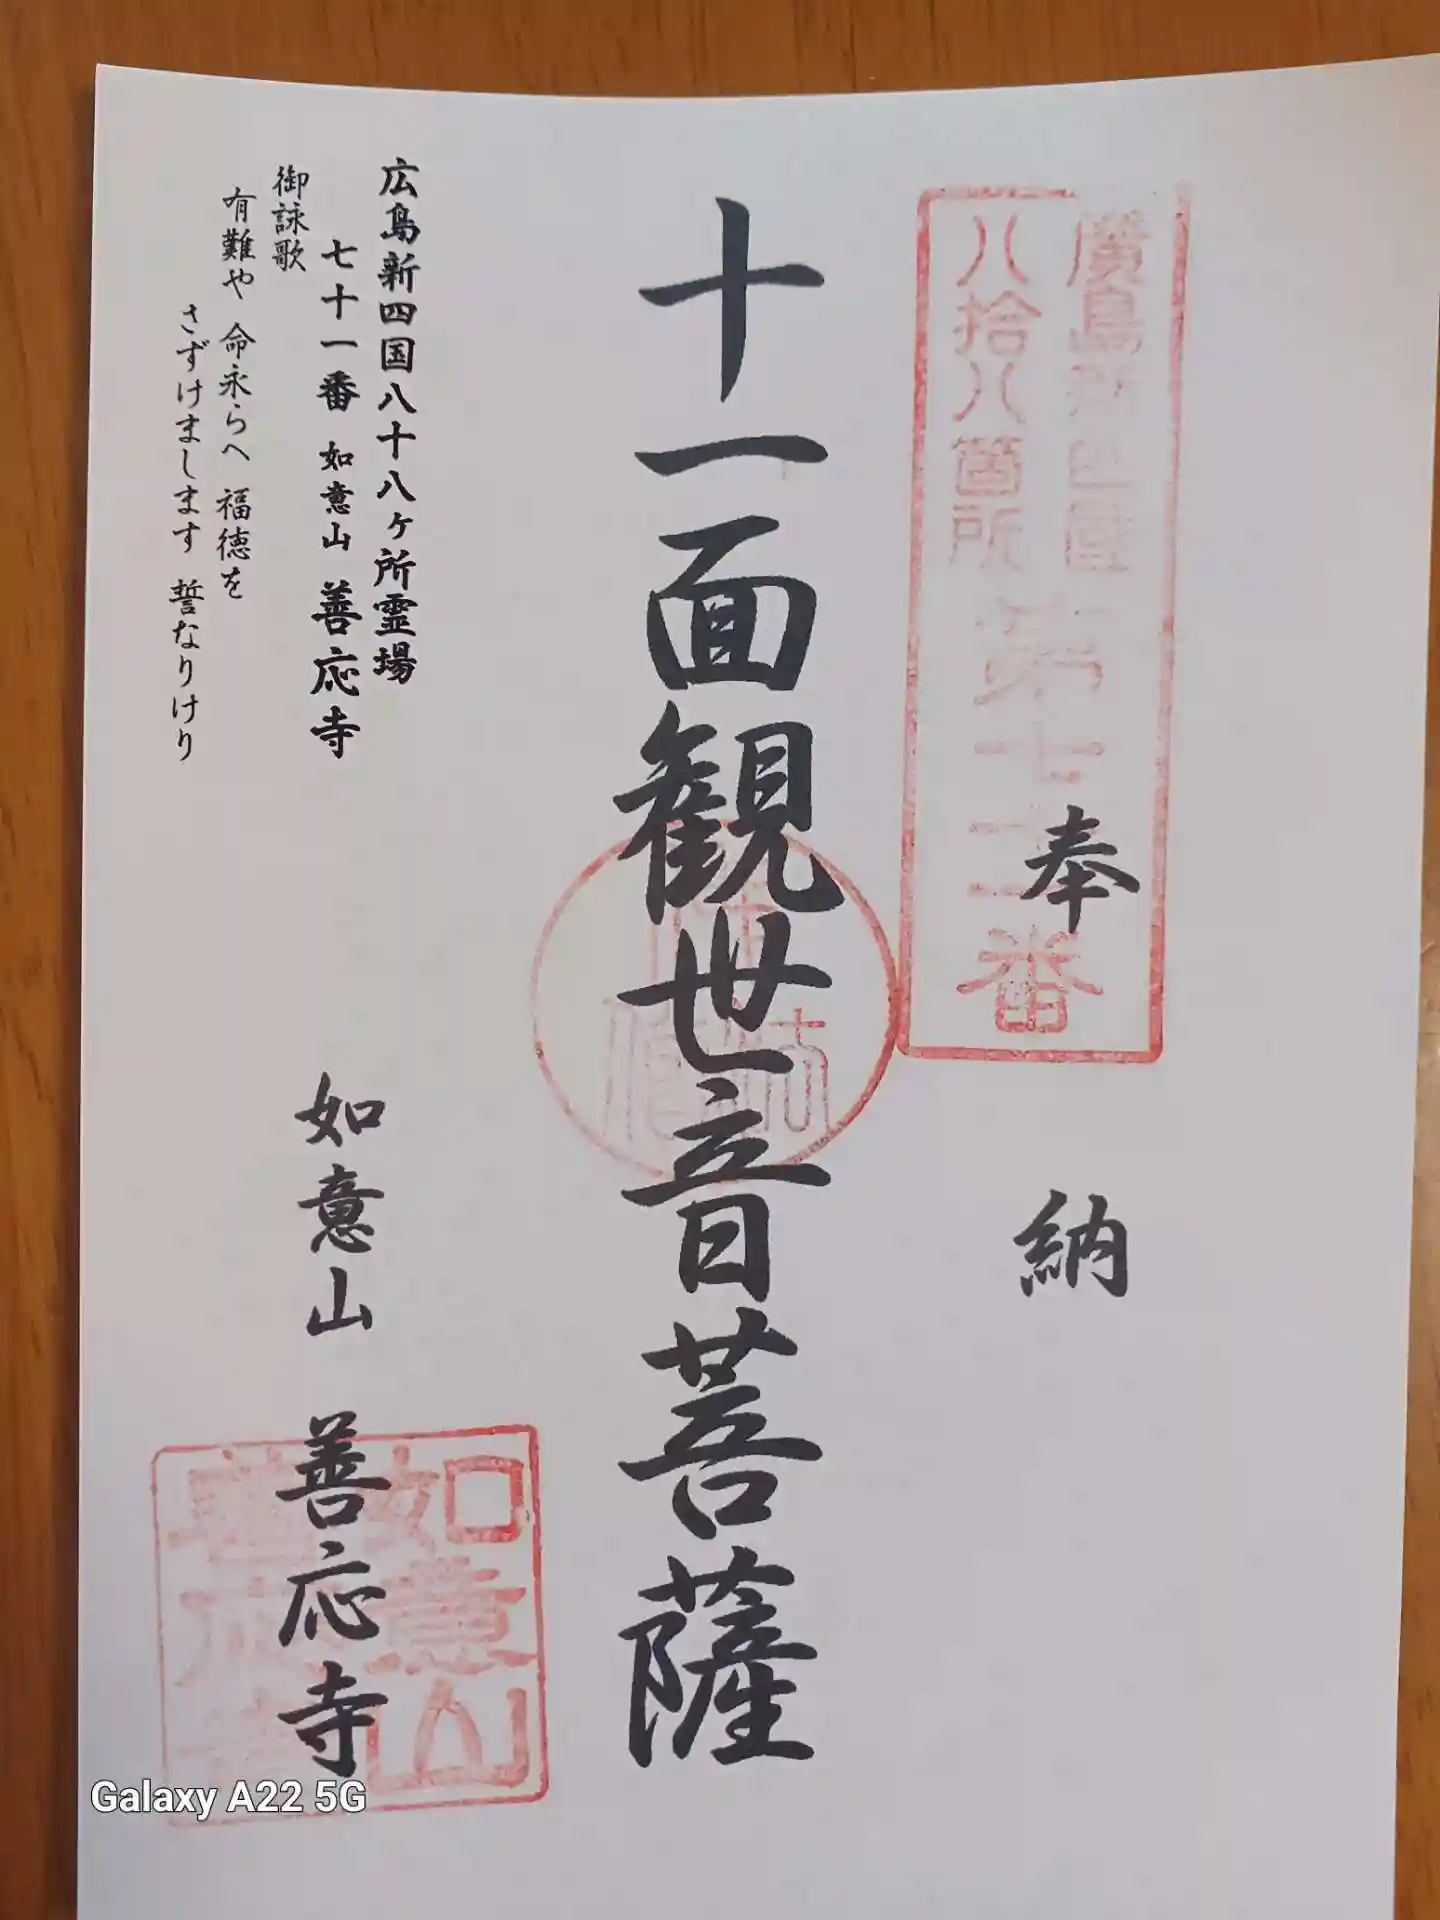 廣島新四國
八拾八箇所
第七十一番
奉納
十一面観世音菩薩
広島新四国八十八ヶ所霊場
七十一番 如意山 善応寺
御詠歌
有難や 命永らへ 福徳を
さずけまします 誓なりけり
如意山 善応寺
如意山
Galaxy A22 5G